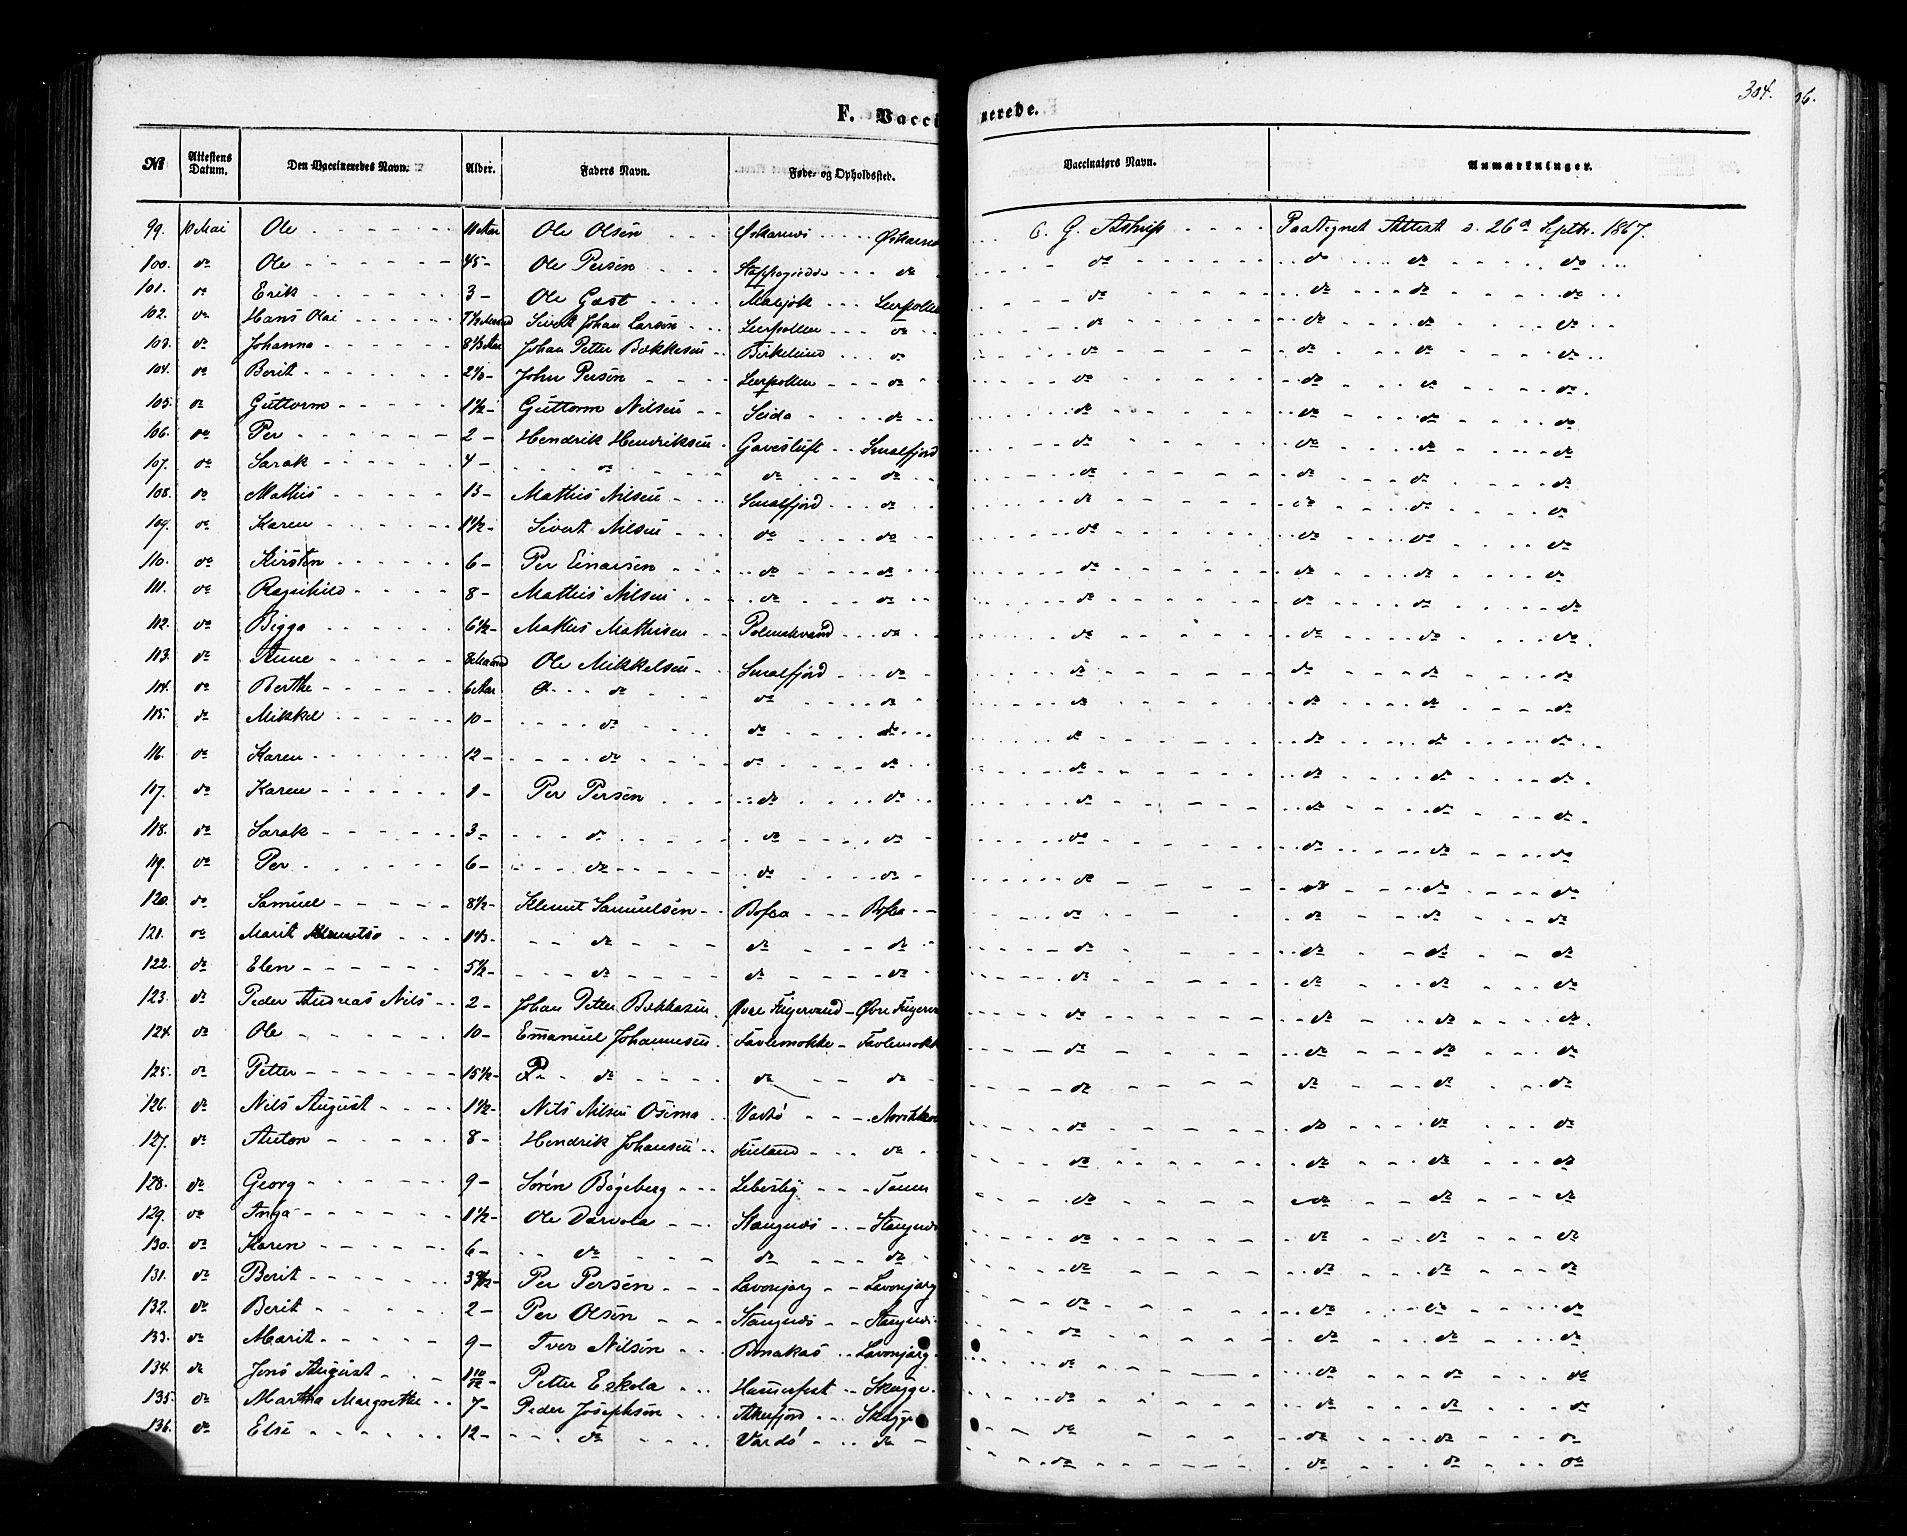 304.
06.
F. Vaccinerede.
№ Attestens Datum. Den Vaccineredes Navn. Alder. Faders Navn. Føde- og Opholdssted. Vaccinatørs Navn. Anmærkninger.
99. 10 Mai Ole Ole Olsen C. G. Paategnet Attest d. 26d Septbr. 1867.
100. do Ole 45 - Ole Persen do do do do do
101. do Erik 3 - Ole Gæst Leerpollen do do do do
102. do Hans Olai Sivert Johan Larsen Leerpollen do do do do do
103. do Johanna 8 1/3 Aar Johan Petter Bækkesen do do do do do
104. do Berit John Persen Leerpollen do do do do do
105. do Guttorm 1 1/2 - Guttorm Nilsen Seida do do do do do
106. do Per 2 - Hendrik Hendriksen Smalfjord do do do do
107. do Sarak 4 - do do do do do do do
108. do Mathis 13 - Mathis Nilsen Smalfjord do do do do do
109. do Karen 1 1/2 - Sivert Nilsen do do do do do do
110. do Kirsten 6 - Per Einarsen do do do do do do
111. do Ragnhild 8 - Mathis Nilsen do do do do do do
112. do Bigga 6 1/2 - Mathis Mathisen Polmakvand do do do do do
113. do Ole Mikkelsen Smalfjord do do do do do
114. do Berthe 6 Aar do do do do do do do
115. do Mikkel 10 - do do do do do do do
116. do Karen 12 - do do do do do do do
117. do Karen 1 - Per Persen do do do do do do
118. do Sarak 3 - do do do do do do do
119. do Per 6 - do do do do do do do
120. do Samuel 8 1/2 - Klemet Samuelsen do do do do
121. do Marit 1 1/3 - do do do do do do do
122. do Elen 5 1/2 - do do do do do do do
123. do Peder Andreas Nils 2 - Johan Petter Bækkesen do do do do
124. do Ole 10 - Emanuel Johannesen do do do do
125. do Petter 15 1/2 - do do do do do do do
126. do Nils August 1 1/2 - Nils Nilsen Vadsø do do do do
127. do Anton 8 - Hendrik Johansen Finland do do do do do
128. do Georg 9 - Sørin Bøgeberg Lebesby Tanen do do do do
129. do Inga 1 1/2 - Ole Stangnæs Stangnæs do do do do
130. do Karen 6 - do do do do do do do
131. do Berit Per Persen Lavonjarg Lavonjarg do do do do
132. do Berit 2 - Per Olsen Stangnæs Stangnæs do do do do
133. do Marit 9 - Iver Nilsen Bonakas Lavonjarg do do do do
134. do Jens August 1 10/12 - Petter Eskola Hammerfest do do do do
135. do Martha Margrethe 7 - Peder Josephsen do do do do
136. do Else 12 - do Vardö do do do do do